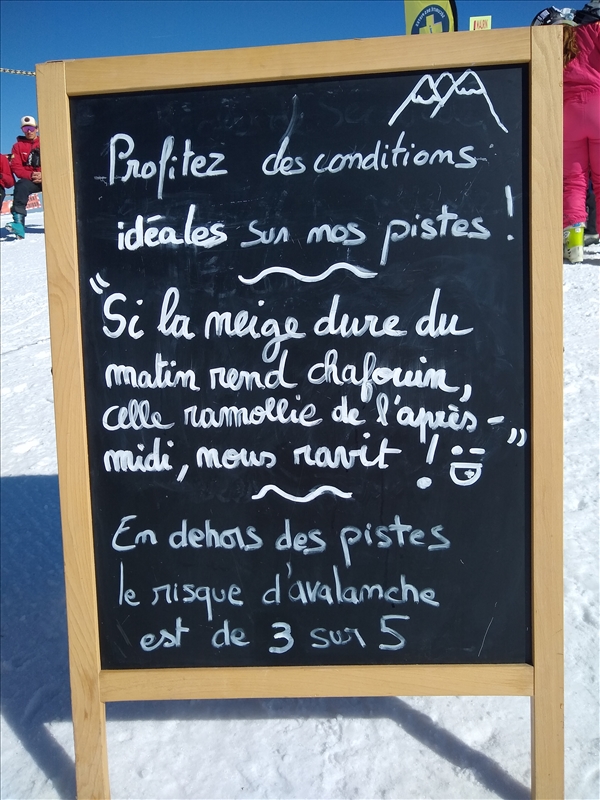 Profitez des conditions
idéales sur nos pistes !
"Si la neige dure du
matin rend chafouin,
celle ramollie de l'après-
midi, nous ravit !"
En dehors des pistes
le risque d'avalanche
est de 3 sur 5